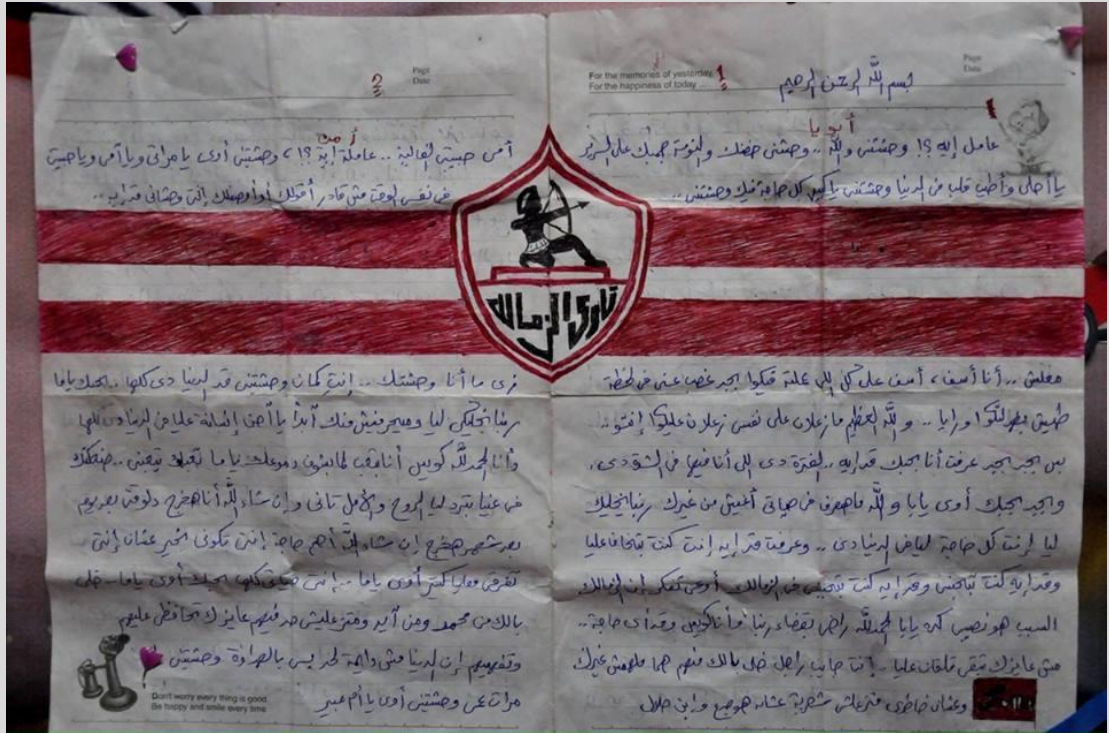 Page
Date
For the memories of yesterday
For the happiness of today ...
1
بسم الله الرحمن الرحيم
أبويا
عامل إيه ؟! وحشتنى والله .. وحشنى حضنك والنومة جمبك على السرير
يا أحلى وأطيب قلب فى الدنيا وحشتنى يا كبير كل حاجة فيك وحشتنى ..
معلش .. أنا أسف، أسف على كل اللى عملته فيكوا بجد غصب عنى فى لحظة
طيش .. والله العظيم ما زعلان على نفسى زعلان عليكوا إنتو ..
بس بجد بجد عرفت أنا بحبك قد إيه .. الفترة دى اللى أنا فيها فى الشدة دى،
وبجد بحبك أوى يابا والله ماهعرف فى حياتى أعيش من غيرك ربنا يخليك
ليا إنت كل حاجة ليا فى الدنيا دى .. وعرفت قد إيه إنت كنت بتخاف عليا
وقد إيه كنت بتحبنى وقد إيه كنت الزمالك أوعى تفكر إن الزمالك
السبب هو نصيبى كده يابا الحمد لله راضى بقضاء ربنا وأنا كويس وقد أى حاجة ..
مش عايزك تبقى قلقان عليا .. أنت جايب راجل خلى بالك منهم هما ملهمش غيرك
وعشان خاطرى متزعلش
وابن حلال
Page
Date
2
أمى
أمى حبيبتى الغالية .. عاملة إية ؟! وحشتينى أوى يا مراتى ويا أمى ويا حبيبتى
فى نفس الوقت مش قادر أقولك أو أوصفلك إنتى وحشانى قد إيه ..
زى ما أنا وحشتك .. إنتِ كمان وحشتينى قد الدنيا دى كلها .. بحبك ياما
ربنا يخليكى ليا وميحرمنيش منك أبداً يا أحن إنسانة عليا فى الدنيا دى كلها
وأنا الحمد لله كويس أنا بتعب لما بشوف دموعك ياما بتعبنى .. ضحكتك
فى عنيا بترد ليا الروح والأمل تانى وإن شاء الله أنا هخرج دلوقتى بعد يوم
بعد شهر هخرج إن شاء الله أهم حاجة إنتى تكونى بخير عشان إنتى
تفرقى معايا كتير أوى ياما .. إنتى حياتى كلها بحبك أوى ياما .. خلى
بالك من محمد ومن أيد ومتزعليش حد فيهم عايزك تحافظى عليهم
وتفهميهم إن الدنيا مش دايمة لحد بس بالهداوة وحشتينى
مرات عمى وحشتينى أوى يا أم عبير
نادى الزمالك
Don't worry every thing is good
Be happy and smile every time